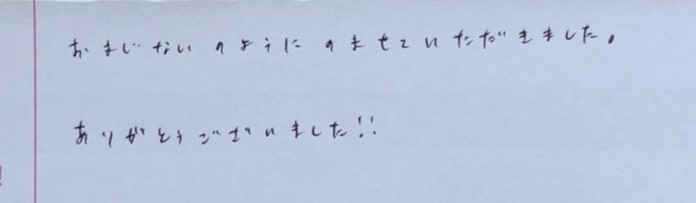 おまじないのようにのませていただきました。
ありがとうございました!!